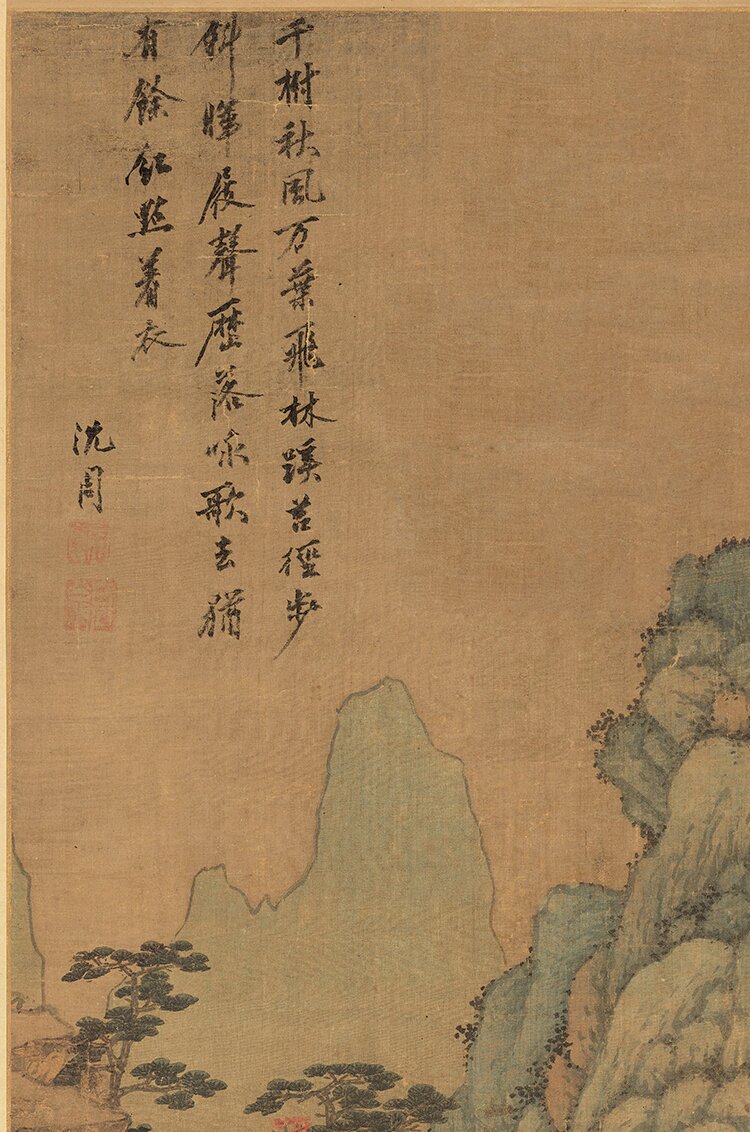 千樹秋風万葉飛林蹊苔徑步
斜暉屐聲歷落咏歌去猶
有餘紅點着衣
沈周